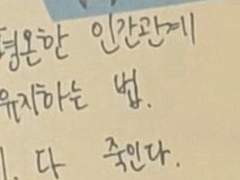 평온한 인간관계
유지하는 법.
다 죽인다.